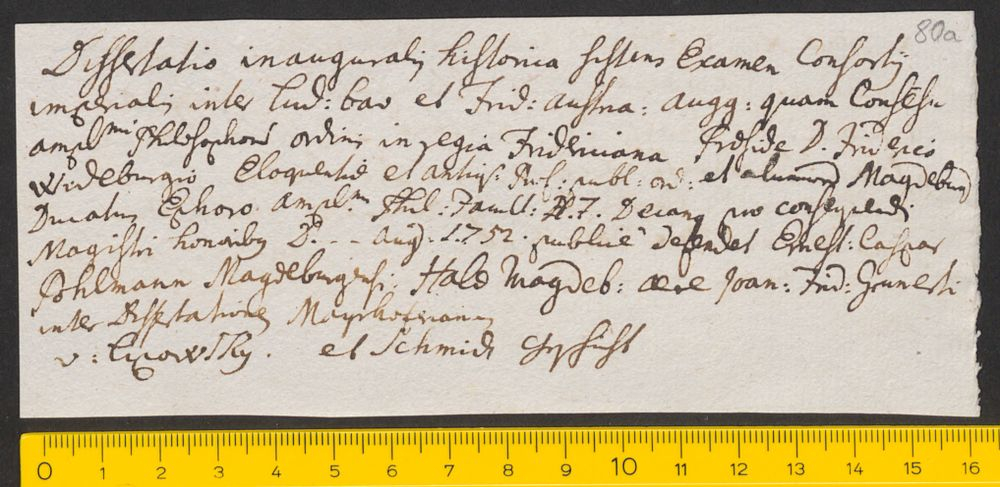 80a
Dissertatio inauguralis historica sistens Examen Consortij
imperialis inter Lud: bav et Frid: austria: augg: quam Consensu
ampl.mi Philosophor ordinis in regia Fridericiana Præside D. Friderico
Wideburgio Eloquentiæ et antiq: Prof: publ: ord: et alumnor Magdeburg
Ducatus Ephoro. ampl.m Phil: Facult: H.T. Decano pro consequendis
Magistri honoribus D. - - Aug. 1752. publice defendet Ernest: Caspar
Pohlmann Magdeburgensis. Halæ Magdeb: ære Joan: Frid: Grunerti
inter Dissertationes Mayrhoferianas
v: Lipowsky. et Schmidt
0 1 2 3 4 5 6 7 8 9 10 11 12 13 14 15 16